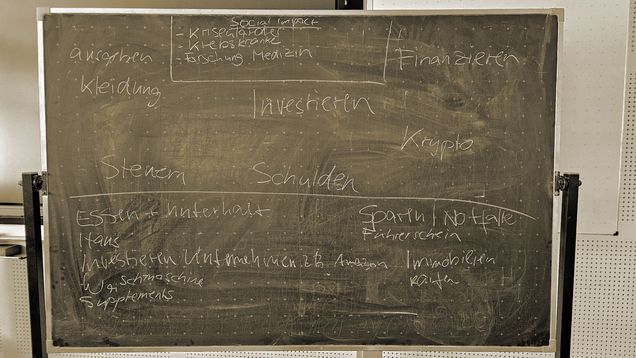 Social Impact
- Krisengebiete
- Krebskranke
- Forschung Medizin
ausgeben
Finanzieren
Kleidung
Investieren
Krypto
Steuern
Schulden
Essen + Unterhalt
Sparen / Notfälle
Haus
Führerschein
Investieren Unternehmen z.B. Amazon
Immobilien
kaufen
Waschmaschine
Supplements